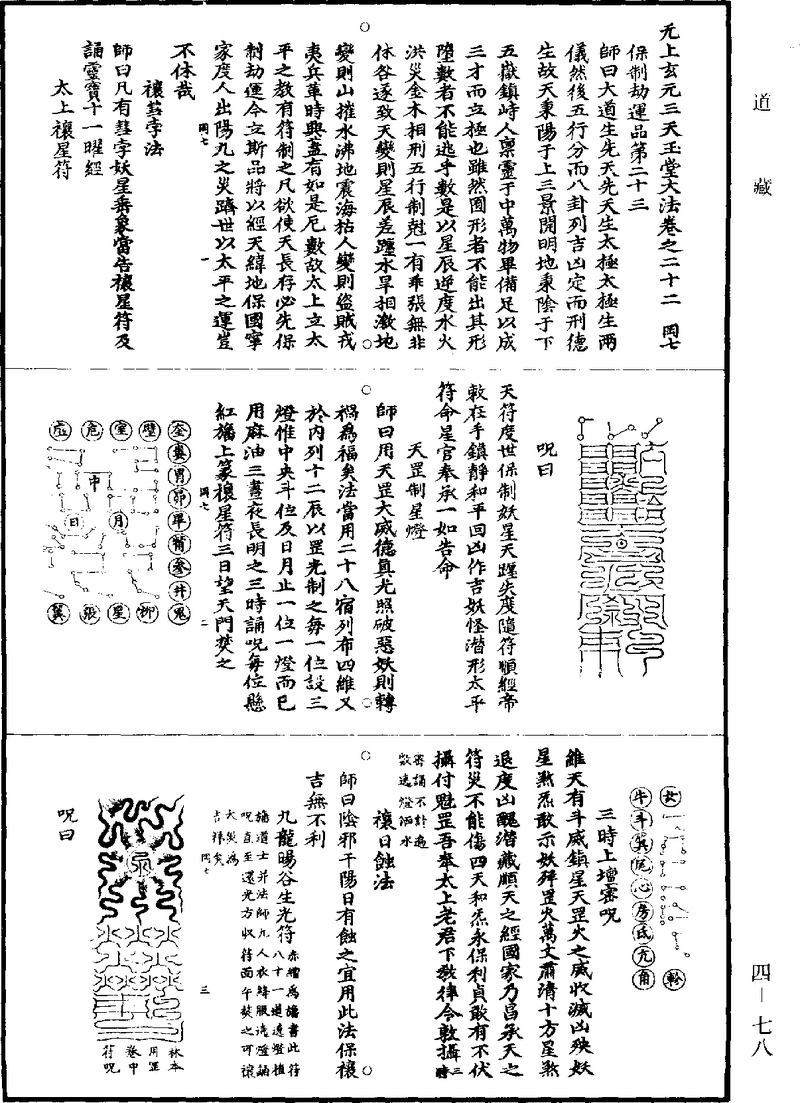 道藏
四—七八
无上玄元三天玉堂大法卷之二十二 岡七
保制劫運品第二十三
師曰大道生先天先天生太極太極生兩
儀然後五行分而八卦列吉凶定而刑德
生故天秉陽于上三景開明地秉陰于下
五嶽鎮峙人稟靈于中萬物畢備足以成
三才而立極也雖然圓形者不能出其形
墮數者不能逃乎數是以星辰逆度水火
洪災金木相刑五行制尅一有乖張無非
休咎遂致天變則星辰差躔水旱相激地
變則山摧水沸地震海枯人變則盜賊戎
夷兵革時興蓋有如是厄數故太上立太
平之教有符制之凡欲使天長存必先保
制劫運今立斯品將以經天緯地保國寧
家度人出陽九之災躋世以太平之運豈
岡七 一
不休哉
禳彗孛法
師曰凡有彗孛妖星乘象當告禳星符及
誦靈寶十一曜經
太上禳星符
呪曰
天符度世保制妖星天躔失度隨符順經帝
敕在手鎮靜和平回凶作吉妖怪潛形太平
符命星官奉承一如告命
天罡制星燈
師曰用天罡大威德真光照破惡妖則轉
禍為福矣法當用二十八宿列布四維又
於内列十二辰以罡光制之每一位設三
燈惟中央斗位及日月止一位一燈而已
用麻油三晝夜長明之三時誦呪每位懸
岡七 二
紅旛上篆禳星符三日望天門焚之
奎婁胃昴畢觜參井鬼
壁
室
危
虛
中
月
日
柳
星
張
翼
女
牛斗箕尾心房氐亢角
軫
三時上壇密呪
維天有斗威鎮星天罡火之威收滅凶殃妖
星煞炁敢示妖殃罡火萬丈肅清十方星煞
退度凶醜潛藏順天之經國家乃昌承天之
符災不能傷四天和炁永保利貞敢有不伏
攝付魁罡吾奉太上老君下教律令敕攝三時
密誦不計遍
數遶燈洒水
禳日蝕法
師曰陰邪干陽日有蝕之宜用此法保禳
吉無不利
九龍暘谷生光符赤繒為旛書此符
八十一道遶燈植
旛道士并法師九人衣絳服遶燈誦
呪直至還光方收符面午焚之可禳
大災為
吉祥矣
岡七 三
林本
用罡
卷中
符呪
呪曰